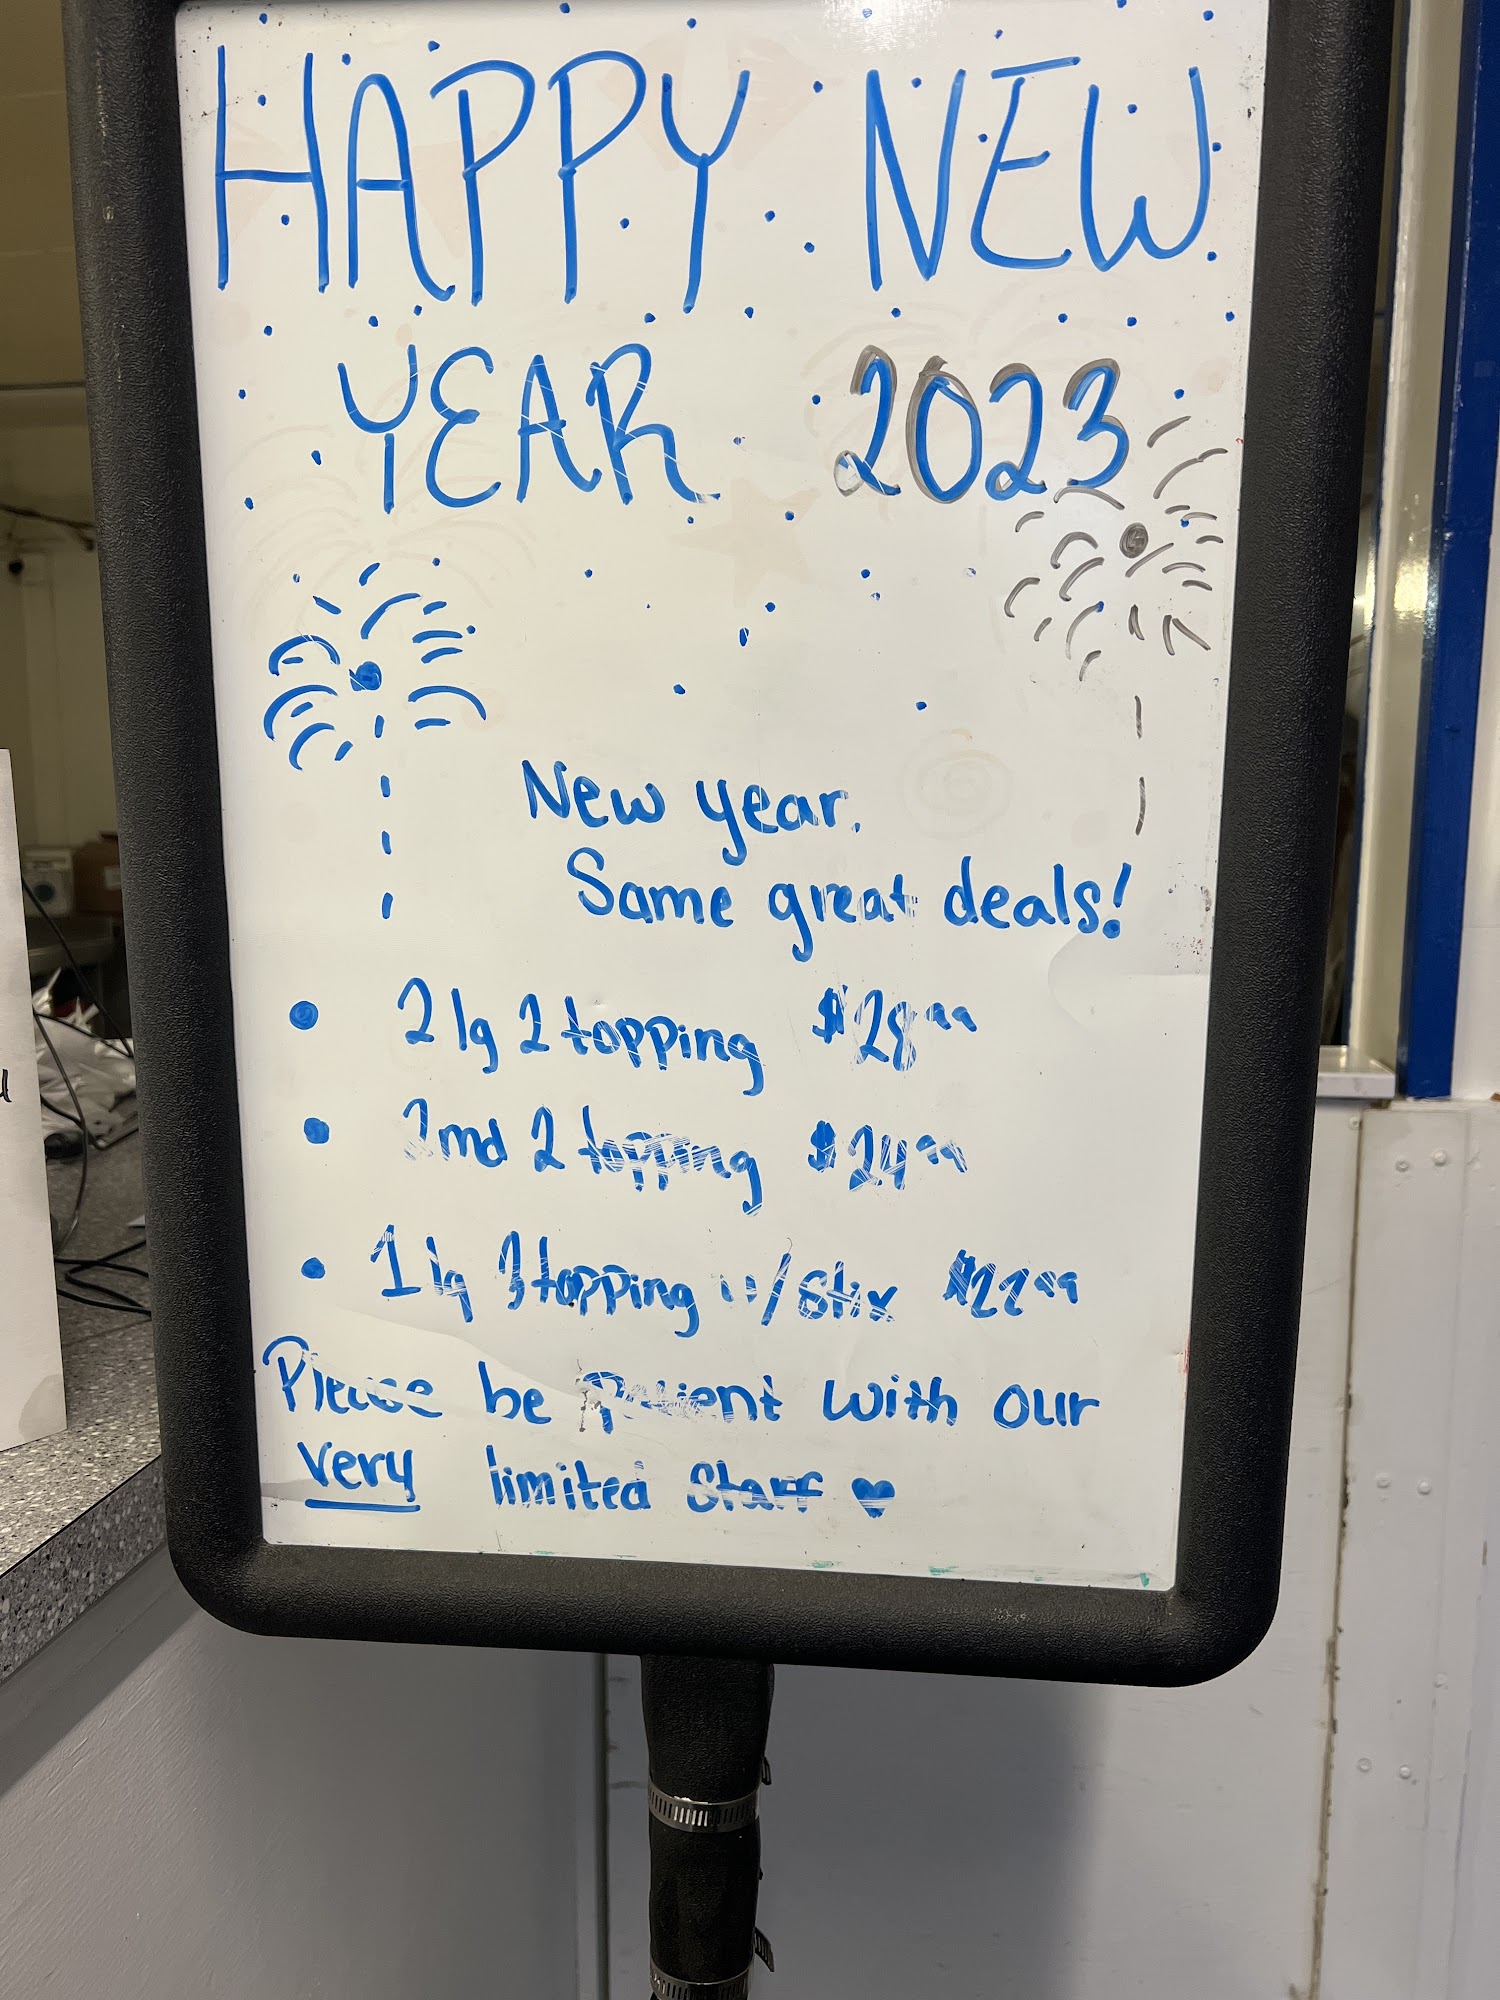 HAPPY NEW
YEAR 2023
New year.
Same great deals!
• 2 lg 2 topping $28⁹⁹
• 2 md 2 topping $24⁹⁹
• 1 lg 3 topping w/ stix $22⁹⁹
Please be patient with our
very limited staff ♥